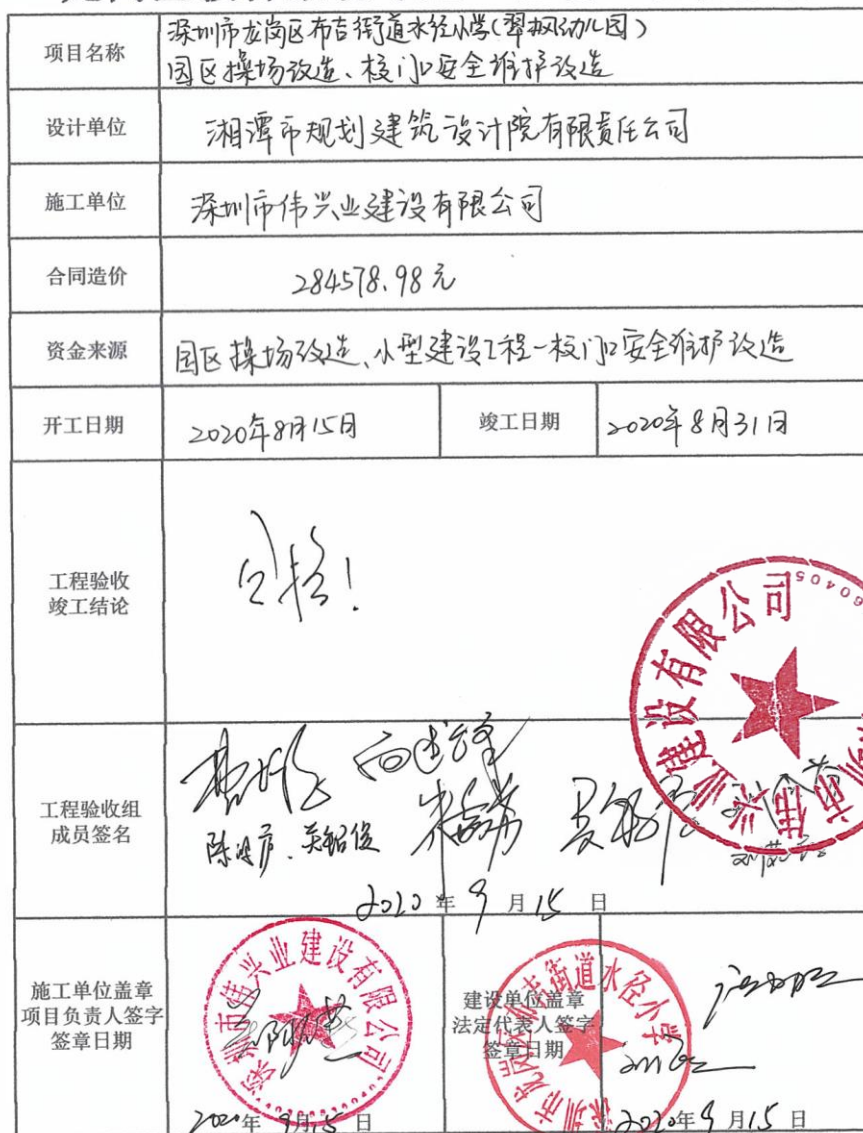 项目名称
深圳市龙岗区布吉街道水径小学(翠枫幼儿园)
园区操场改造、校门口安全维护改造
设计单位
湘潭市规划建筑设计院有限责任公司
施工单位
深圳市伟兴业建设有限公司
合同造价
284578.98元
资金来源
园区操场改造、小型建设工程-校门口安全维护改造
开工日期
2020年8月15日
竣工日期
2020年8月31日
工程验收
竣工结论
合格!
市伟兴业建设有限公司
工程验收组
成员签名
2020年9月15日
施工单位盖章
项目负责人签字
签章日期
深圳市伟兴业建设有限公司
2020年9月15日
建设单位盖章
法定代表人签字
签章日期
深圳市龙岗区布吉街道水径小学
2020年9月15日